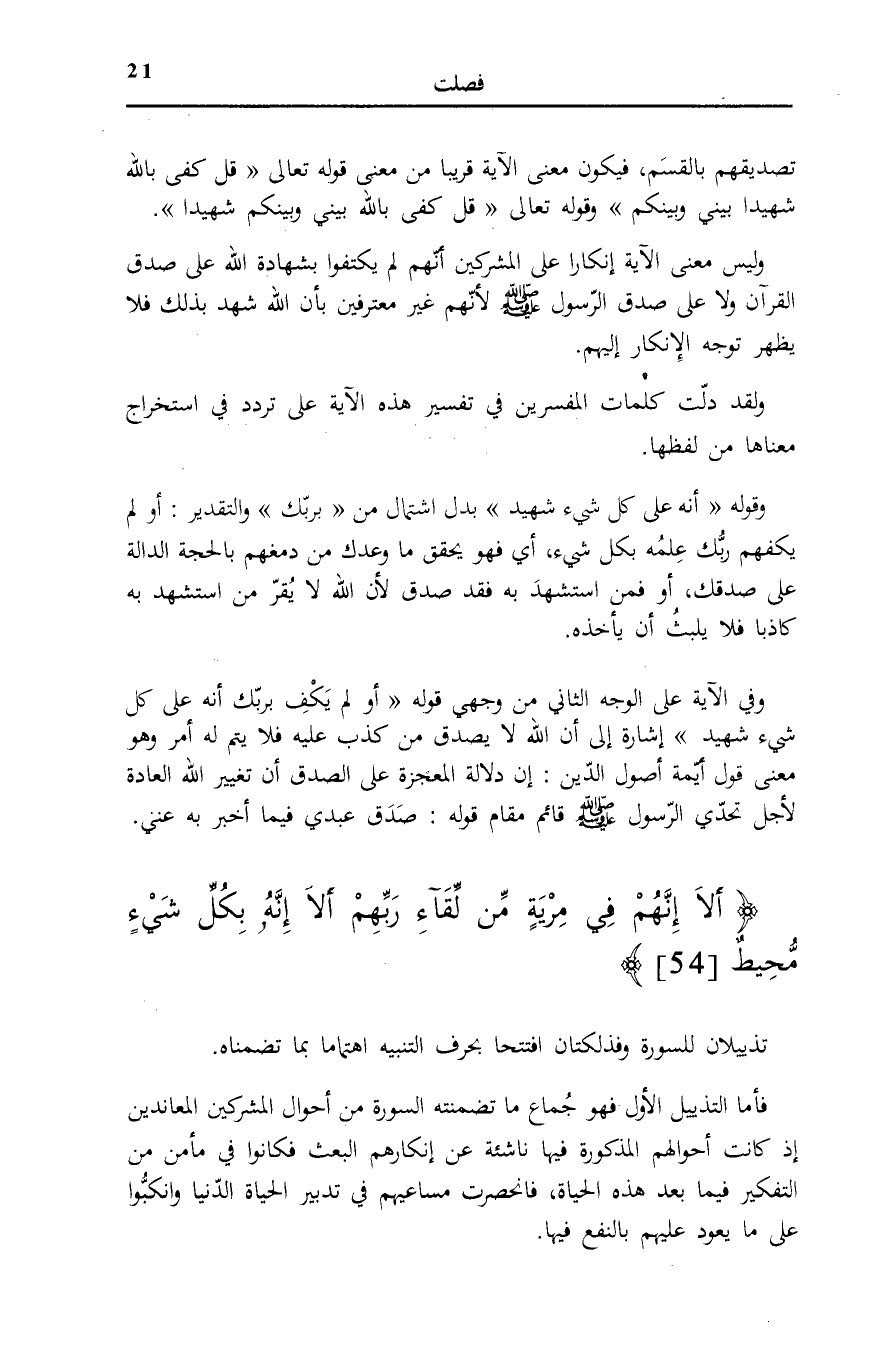 21
فصلت
تصديقهم بالقسَم، فيكون معنى الآية قريبا من معنى قوله تعالى « قل كفى بالله
شهيدا بيني وبينكم » وقوله تعالى « قل كفى بالله بيني وبينكم شهيدا ».
وليس معنى الآية إنكارا على المشركين أنّهم لم يكتفوا بشهادة الله على صدق
القرآن ولا على صدق الرّسول ﷺ لأنّهم غير معترفين بأن الله شهد بذلك فلا
يظهر توجه الإنكار إليهم.
ولقد دلّت كلمات المفسرين في تفسير هذه الآية على تردد في استخراج
معناها من لفظها.
وقوله « أنه على كل شيء شهيد » بدل اشتمال من « بربّك » والتقدير : أو لم
يكفهم ربُّك عِلمُه بكل شيء، أي فهو يحقق ما وعدك من دمغهم بالحجة الدالة
على صدقك، أو فمن استشهدَ به فقد صدق لأن الله لا يُقرّ من استشهد به
كاذبا فلا يلبثُ أن يأخذه.
وفي الآية على الوجه الثاني من وجهي قوله « أو لم يَكْفِ بربّك أنه على كل
شيء شهيد » إشارة إلى أن الله لا يصدق من كذب عليه فلا يتم له أمر وهو
معنى قول أيّمة أصول الدّين : إن دلالة المعجزة على الصدق أن تغيير الله العادة
لأجل تحدّي الرّسول ﷺ قائم مقام قوله : صَدَق عبدي فيما أخبر به عني.
﴿ أَلاَ إِنَّهُمْ فِي مِرْيَةٍ مِّن لِّقَآءِ رَبِّهِمْ أَلاَ إِنَّهُۥ بِكُلِّ شَيْءٍ
مُّحِيطٌ [54] ﴾
تذييلان للسورة وفذلكتان افتتحا بحرف التنبيه اهتماما بما تضمناه.
فأما التذييل الأول فهو جُماع ما تضمنته السورة من أحوال المشركين المعاندين
إذ كانت أحوالهم المذكورة فيها ناشئة عن إنكارهم البعث فكانوا في مأمن من
التفكير فيما بعد هذه الحياة، فانحصرت مساعيهم في تدبير الحياة الدّنيا وانكبُّوا
على ما يعود عليهم بالنفع فيها.